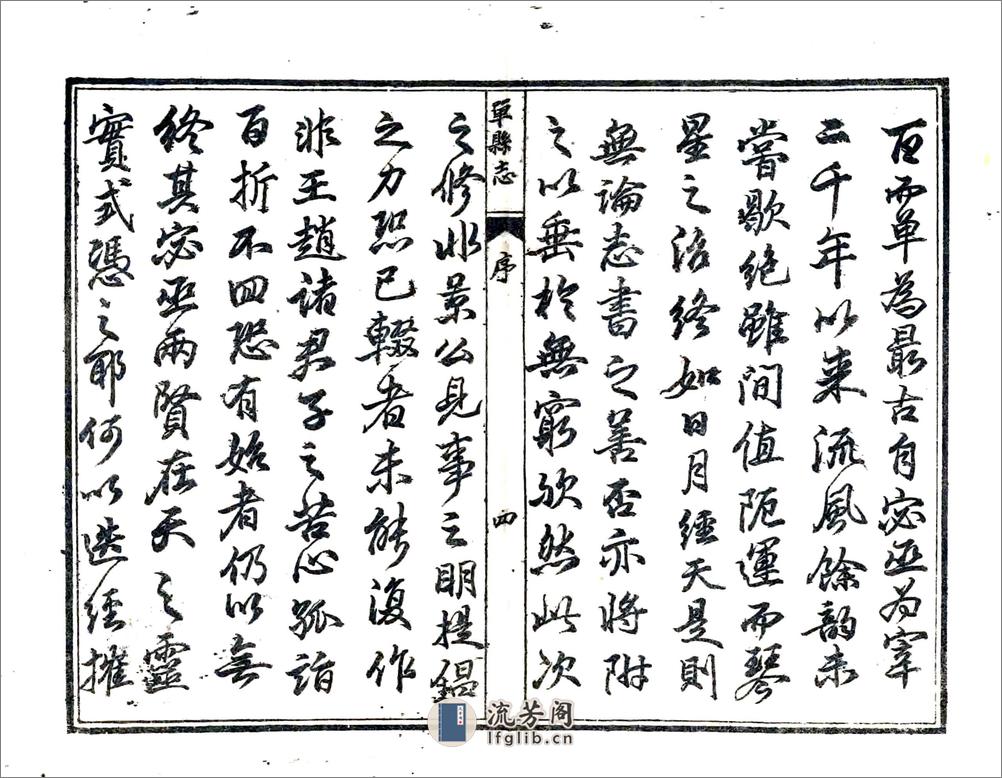 百而單為最古自宓巫為宰
二千年以來流風餘韵未
嘗歇絕雖間值阨運而琴
星之治終如日月經天是則
無論志書之善否亦將附
之以垂於無窮歟然此次
之修非景公見事之明提鋇
之力恐已輟者未能復作
非王趙諸君子之苦心孤詣
百折不回恐有始者仍以無
終其宓巫兩賢在天之靈
實式憑之耶何以迭經摧
單縣志
序
四
流芳阁
lfglib.cn